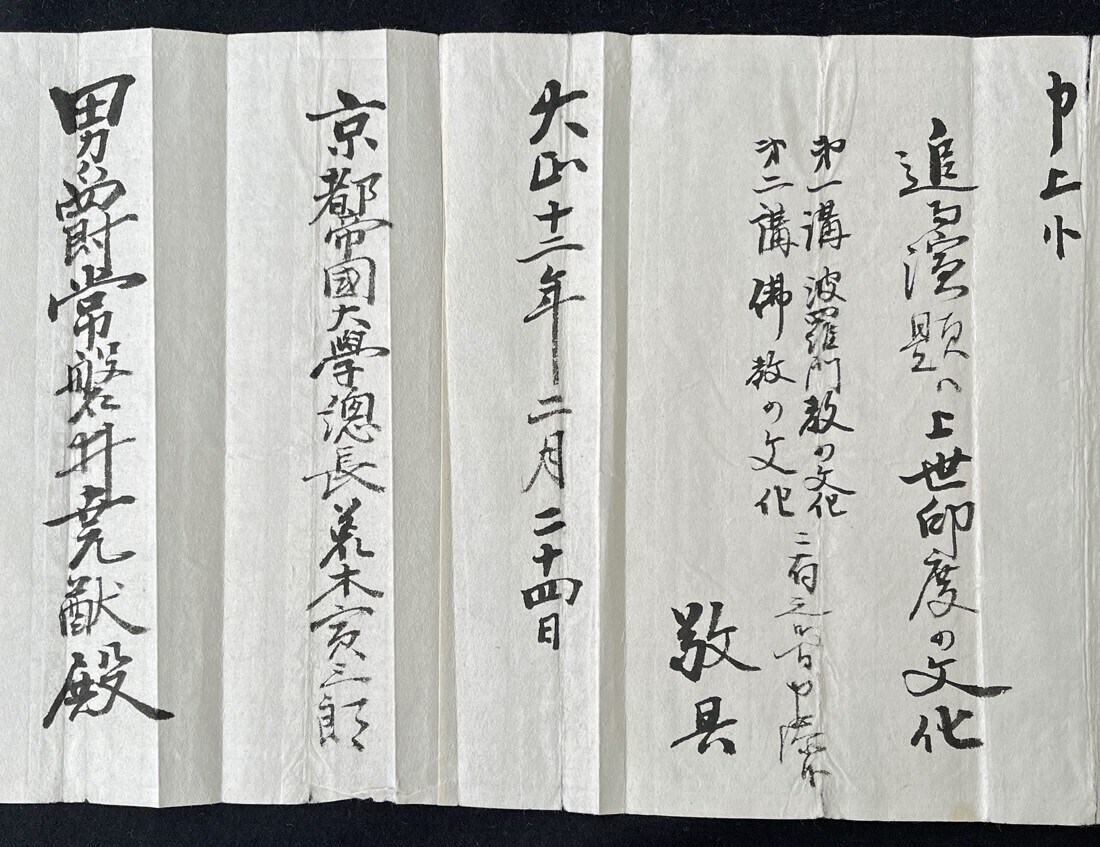 申上候
追而演題ハ上世印度の文化
第一講 波羅門教の文化
第二講 佛教の文化
ニ有之 申添候
敬具
大正十二年二月二十四日
京都帝國大學總長荒木寅三郎
男爵常磐井尭猷殿